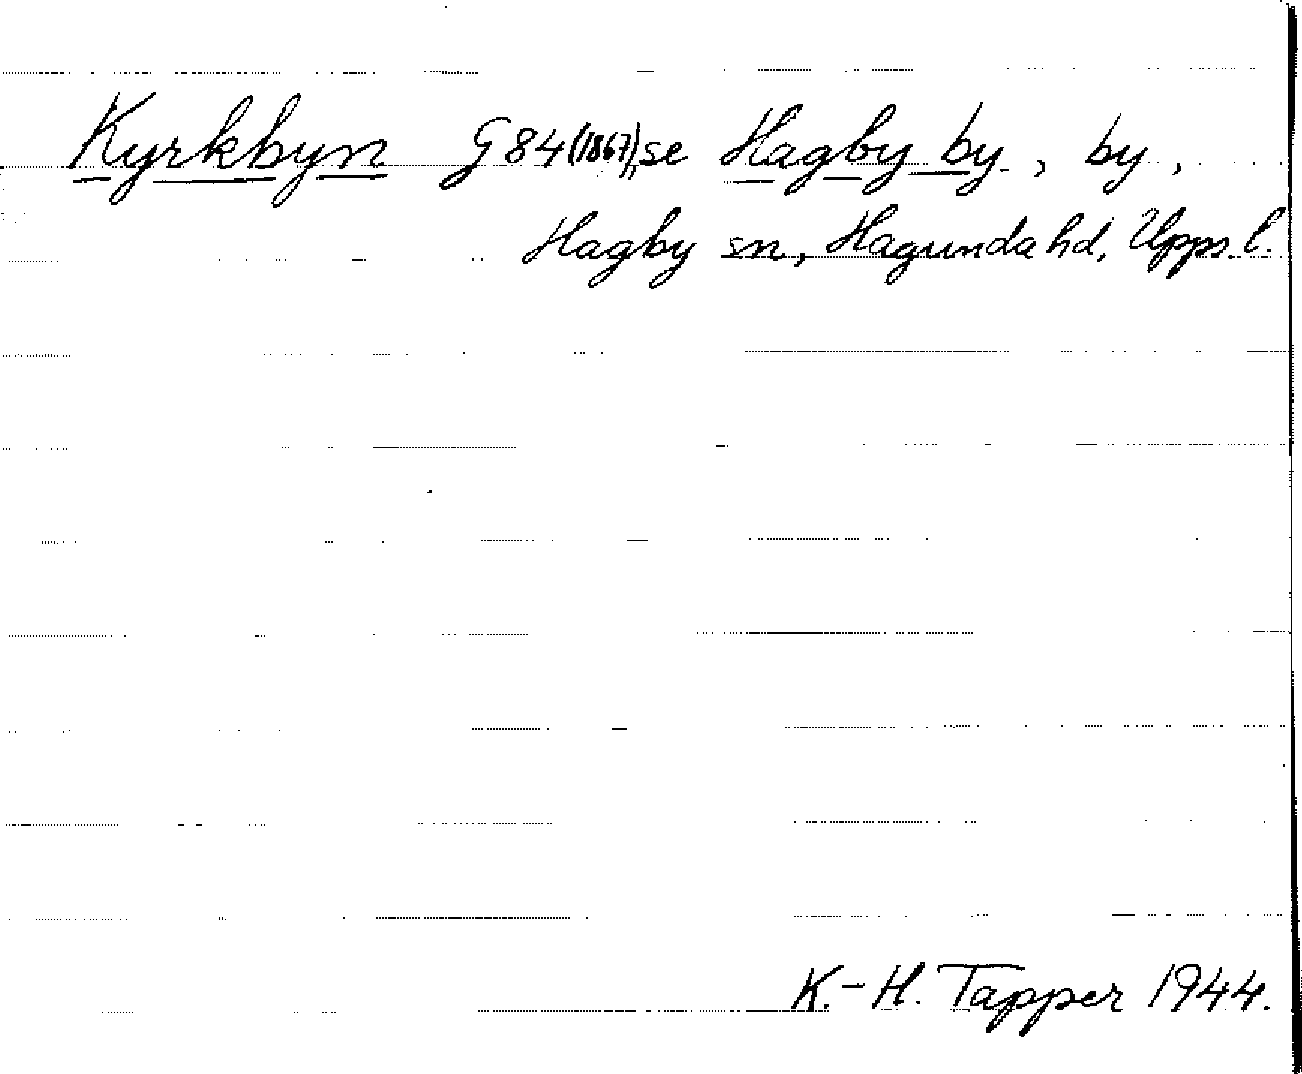 Kyrkbyn G 84 (1867), se Hagby by, by,
Hagby sn, Hagunda hd, Upps. l.
K.-H. Tapper 1944.